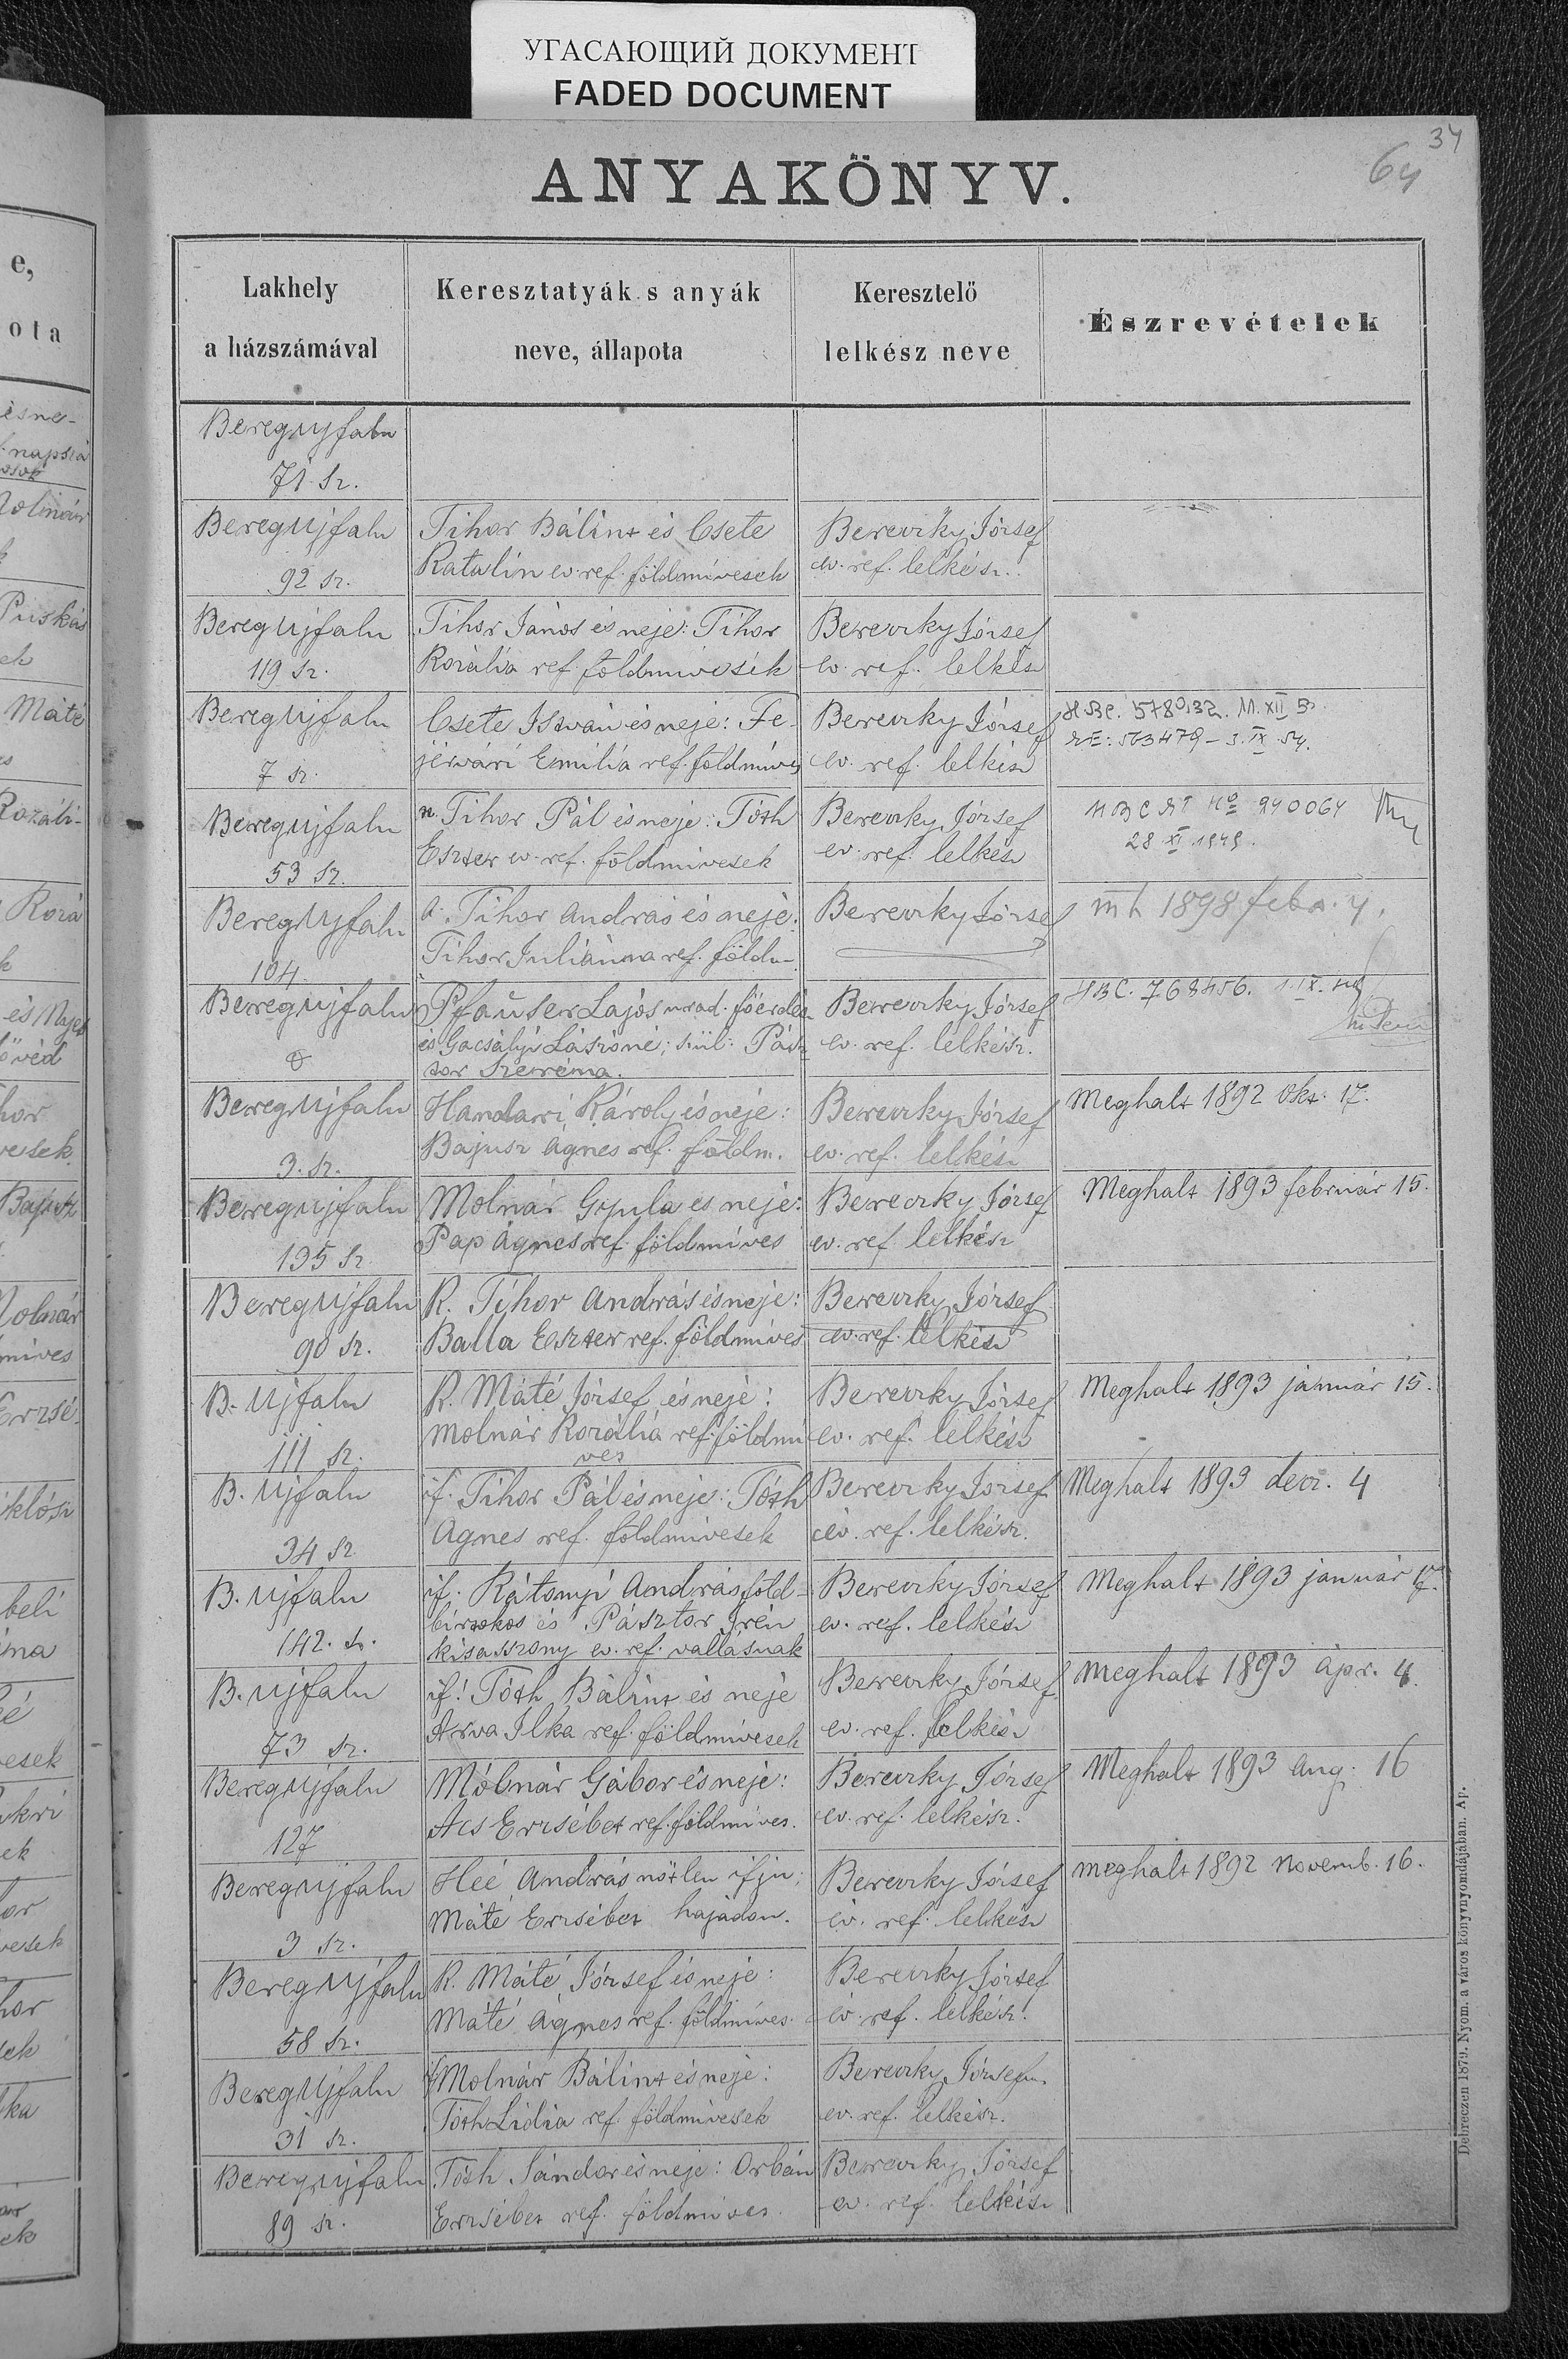 УГАСАЮЩИЙ ДОКУМЕНТ
FADED DOCUMENT
34
64
ANYAKÖNYV.
Lakhely
a házszámával
Keresztatyák s anyák
neve, állapota
Keresztelő
lelkész neve
Észrevételek
Beregujfalu
71 sz.
Beregujfalu
92 sz.
Tihor Bálint és Csete
Katalin ev. ref. földmívesek
Bereczky József
ev. ref. lelkész.
Beregujfalu
119 sz.
Tihor János és neje: Tihor
Rozália ref. földmívesek
Bereczky József
ev. ref. lelkész
Beregujfalu
7 sz.
Csete István és neje: Fe-
jérvári Emília ref. földmíves
Bereczky József
ev. ref. lelkész
578032. 11. XII
563479 - 3. IX. 54.
Beregujfalu
53 sz.
n. Tihor Pál és neje: Tóth
Eszter ev. ref. földmívesek
Bereczky József
ev. ref. lelkész
No 240064
28 XI 1949.
Beregujfalu
104.
a. Tihor András és neje:
Tihor Juliánna ref. földm.
Bereczky József
mh 1898 febr. 4.
Beregujfalu
Pfauser Lajos urad. főerdés
és Gacsályi Lászóné; szül: Pász
tor Szeréma.
Bereczky József
ev. ref. lelkész.
768456. 1. IX.
Beregujfalu
3. sz.
Handari Károly és neje:
Bajusz Ágnes ref. földm.
Bereczky József
ev. ref. lelkész
Meghalt 1892 Okt. 17.
Beregujfalu
195 sz.
Molnár Gyula és neje:
Pap Ágnes ref. földmíves
Bereczky József
ev. ref. lelkész
Meghalt 1893 február 15.
Beregujfalu
90 sz.
K. Tihor András és neje:
Balla Eszter ref. földmíves
Bereczky József
ev. ref. lelkész
B. ujfalu
111 sz.
K. Máté József és neje:
Molnár Rozália ref. földmí
ves
Bereczky József
ev. ref. lelkész
Meghalt 1893 január 15.
B. ujfalu
34 sz.
if. Tihor Pál és neje: Tóth
Ágnes ref. földmívesek
Bereczky József
ev. ref. lelkész.
Meghalt 1893 decz. 4
B. ujfalu
142. sz.
if. Rátonyi András föld-
birtokos és Pásztor Irén
kisasszony ev. ref. vallásuak
Bereczky József
ev. ref. lelkész
Meghalt 1893 január 17.
B. ujfalu
73 sz.
if! Tóth Bálint és neje
Árva Ilka ref. földmívesek
Bereczky József
ev. ref. lelkész
Meghalt 1893 ápr. 4.
Beregujfalu
127
Molnár Gábor és neje:
Ács Erzsébet ref. földmíves.
Bereczky József
ev. ref. lelkész.
Meghalt 1893 aug. 16
Beregujfalu
3 sz.
Héé András nőtlen ifju;
Máté Erzsébet hajadon.
Bereczky József
ev. ref. lelkész
meghalt 1892 Novemb. 16.
Beregujfalu
58 sz.
K. Máté József és neje:
Máté Ágnes ref. földmíves.
Bereczky József
ev. ref. lelkész.
Beregujfalu
31 sz.
Molnár Bálint és neje:
Tóth Lidia ref. földmívesek
Bereczky József
ev. ref. lelkész.
Beregujfalu
89 sz.
Tóth Sándor és neje: Orbán
Erzsébet ref. földmíves
Bereczky József
ev. ref. lelkész
Debreczen 1879. Nyom. a város könyvnyomdájában. Ap.